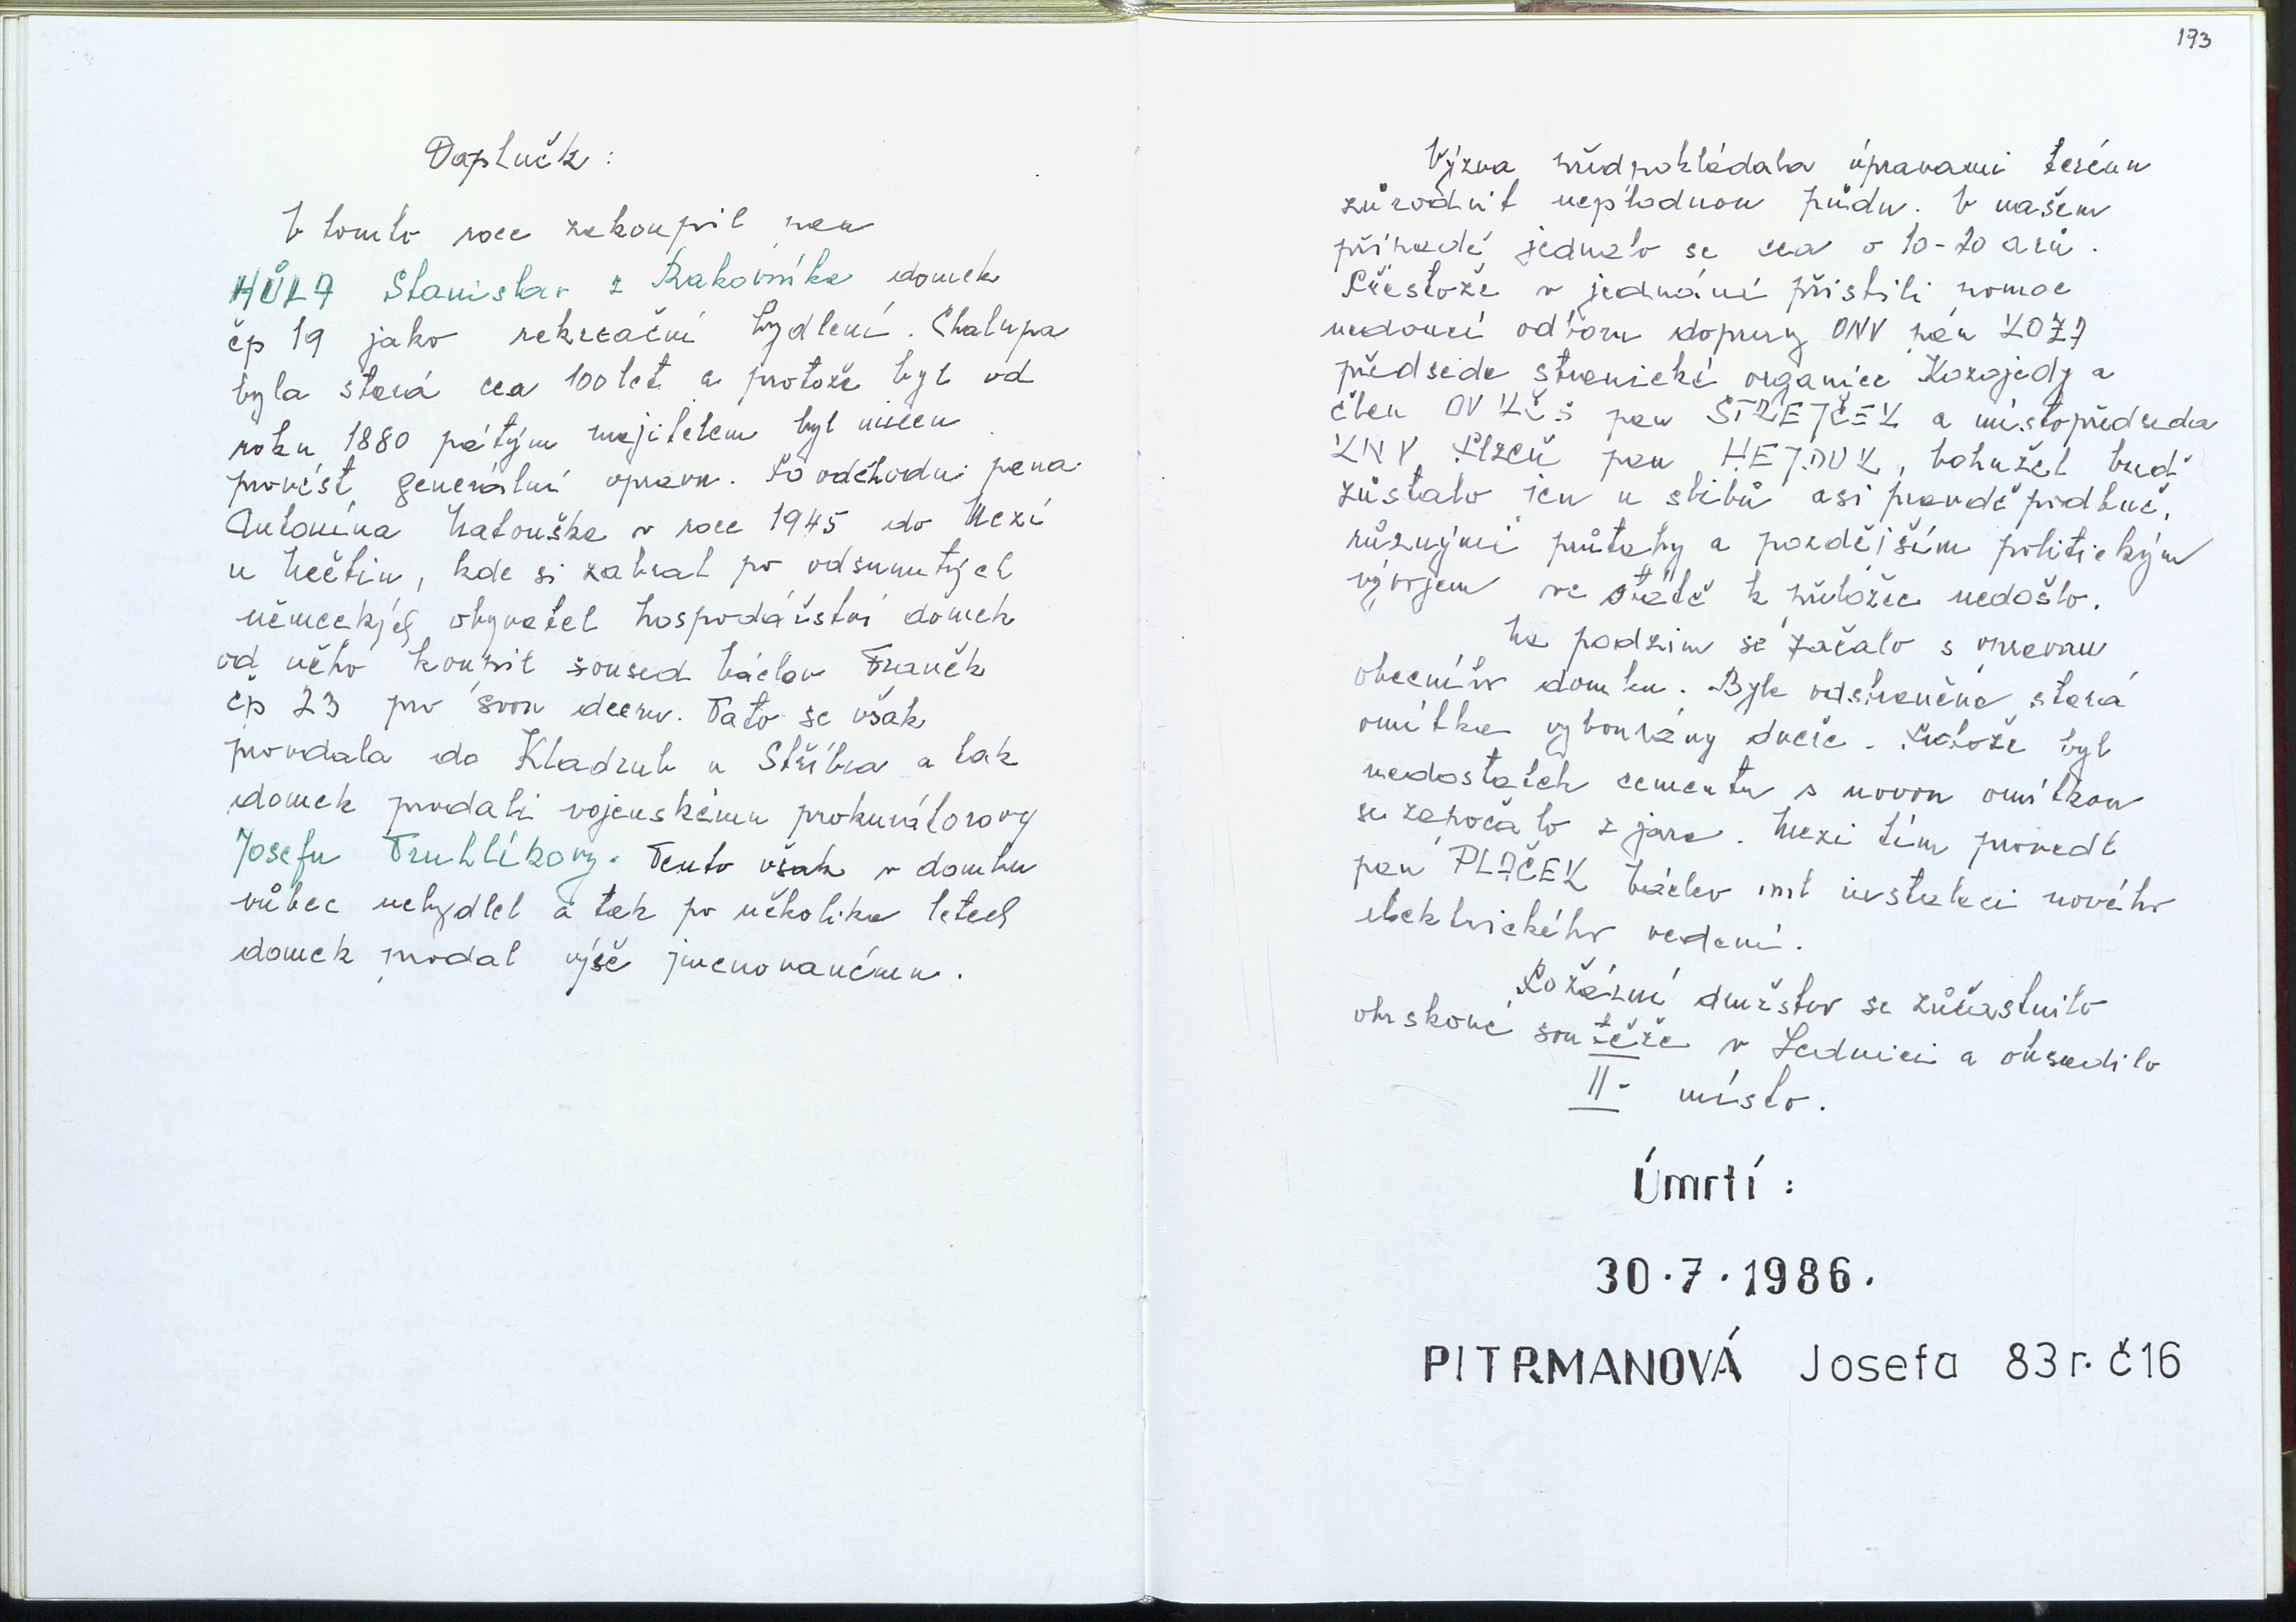 Doplněk :
V tomto roce zakoupil pan
HŮLA Stanislav z Rakovníka domek
čp 19 jako rekreační bydlení. Chalupa
byla stará cca 100 let a protože byl od
roku 1880 pátým majitelem byl nucen
provést generální opravu. Po odchodu pana
Antonína Matouška v roce 1945 do Mezí
u Nečtin, kde si zabral po odsunutých
německých obyvatel hospodářství domek
od něho koupil soused Václav Franěk
čp 23 pro svou dceru. Tato se však
provdala do Kladrub u Stříbra a tak
domek prodali vojenskému prokurátorovy
Josefu Truhlíkovy. Tento však v domku
vůbec nebydlel a tak po několika letech
domek prodal výše jmenovanému.
193
Výzva předpokládala úpravami terénu
zúrodnit neplodnou půdu. V našem
případě jednalo se cca o 10-20 arů.
Přestože v jednání přislíbili pomoc
vedoucí odboru dopravy ONV pán KOZA
předseda stranické organice Kozojedy a
člen OV KČS pan STREJČEK a místopředseda
KNV Plzeň pan HEJDUK, bohužel buď
zůstalo jen u slibů asi pravděpodbně,
růsnými průtahy a pozdějším politickým
vývojem ve státě k přeložce nedošlo.
Na podzim se začalo s opravou
obecního domku. Byla odstraněna stará
omítka vybourány dveře. Protože byl
nedostatek cementu s novou omítkou
se započalo z jara. Mezi tím provedl
pan PLAČEK Václav ml instalaci nového
elektrického vedení.
Požární družstvo se zůčastnilo
okrskové soutěže v Lednici a obsadilo
II- místo.
Úmrtí :
30.7.1986.
PITRMANOVÁ Josefa 83 r. č 16